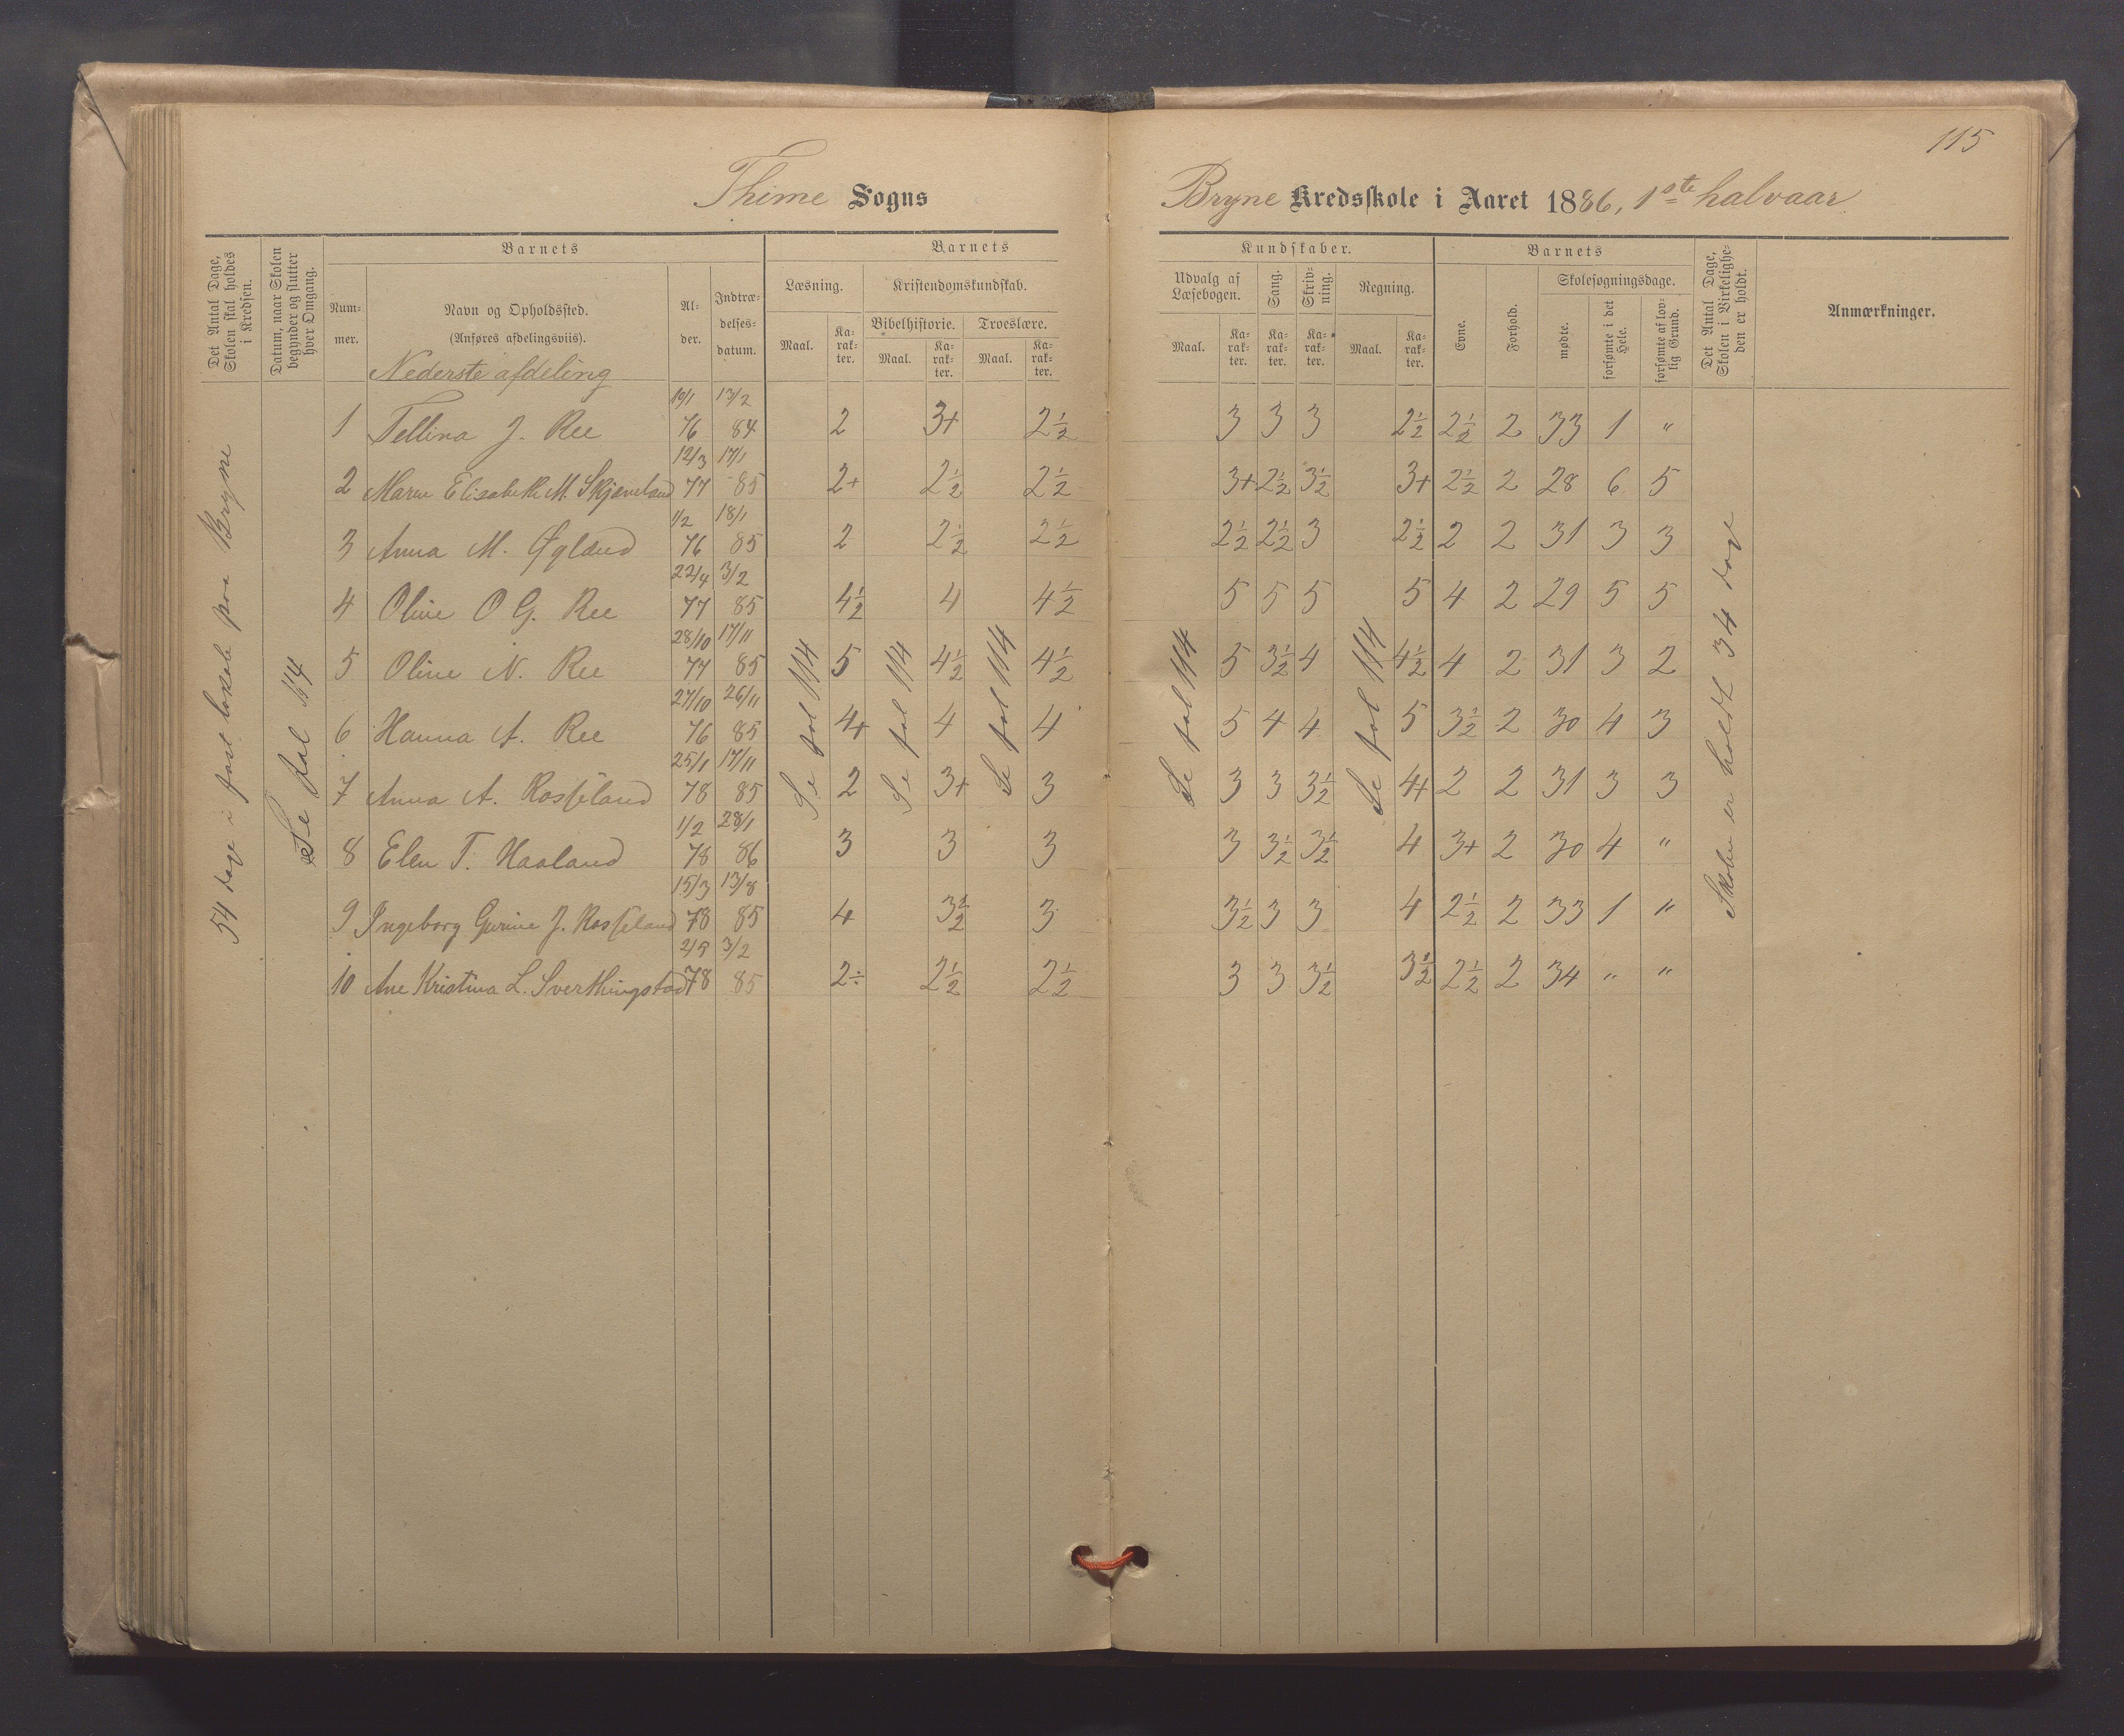 115
Thime Sogns
Bryne Kredsskole i Aaret 1886, 1ste halvaar
Det Antal Dage, Skolen skal holdes i Kredsen.
Datum, naar Skolen begynder og slutter hver Omgang.
Barnets
Nummer.
Navn og Opholdssted.
(Anføres afdelingsviis).
Alder.
Indtrædelsesdatum.
Barnets
Læsning.
Maal.
Karakter.
Kristendomskundskab.
Bibelhistorie.
Maal.
Karakter.
Troeslære.
Maal.
Karakter.
Kundskaber.
Udvalg af Læsebogen.
Maal.
Karakter.
Sang.
Karakter.
Skrivning.
Karakter.
Regning.
Maal.
Karakter.
Barnets
Evne.
Forhold.
Skolesøgningsdage.
mødte.
forsømte i det Hele.
forsømte af lovlig Grund.
Det Antal Dage, Skolen i Virkeligheden er holdt.
Anmærkninger.
Nederste afdeling
54 dage i fast lokale paa Bryne
Se fol 114
Se fol 114
Se fol 114
Se fol 114
Se fol 114
Se fol 114
Skolen er holdt 34 dage
1 Tellina J. Ree 19/1 76 13/2 84 2 3+ 2½ 3 3 3 2½ 2½ 2 33 1 "
2 Maren Elisabeth M. Skjæveland 12/3 77 17/1 85 2+ 2½ 2½ 3+ 2½ 3½ 3+ 2½ 2 28 6 5
3 Anna M. Øgland 1/2 76 18/1 85 2 2½ 2½ 2½ 2½ 3 2½ 2 2 31 3 3
4 Oline O G. Ree 22/4 77 3/2 85 4½ 4 4½ 5 5 5 5 4 2 29 5 5
5 Oline N. Ree 28/10 77 17/11 85 5 4½ 4½ 5 3½ 4 4½ 4 2 31 3 2
6 Hanna A. Ree 27/10 76 26/11 85 4+ 4 4 5 4 4 5 3½ 2 30 4 3
7 Anna A. Rosseland 25/1 78 17/11 85 2 3+ 3 3 3 3½ 4+ 2 2 31 3 3
8 Elen T. Haaland 1/2 78 28/1 86 3 3 3 3 3½ 3½ 4 3+ 2 30 4 "
9 Ingeborg Gurine J. Rosseland 15/3 78 13/8 85 4 3½ 3 3½ 3 3 4 2½ 2 33 1 "
10 Ane Kristina L. Sverthingstad 2/5 78 3/2 85 2÷ 2½ 2½ 3 3 3½ 3½ 2½ 2 34 " "